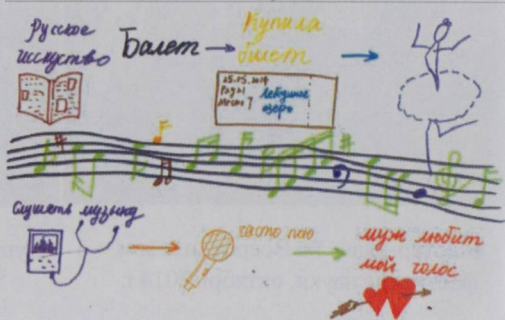 Русское искусство
Балет
Купила билет
Ряд 1
Место 7
Лебединое озеро
Слушать музыку
часто пою
муж любит мой голос